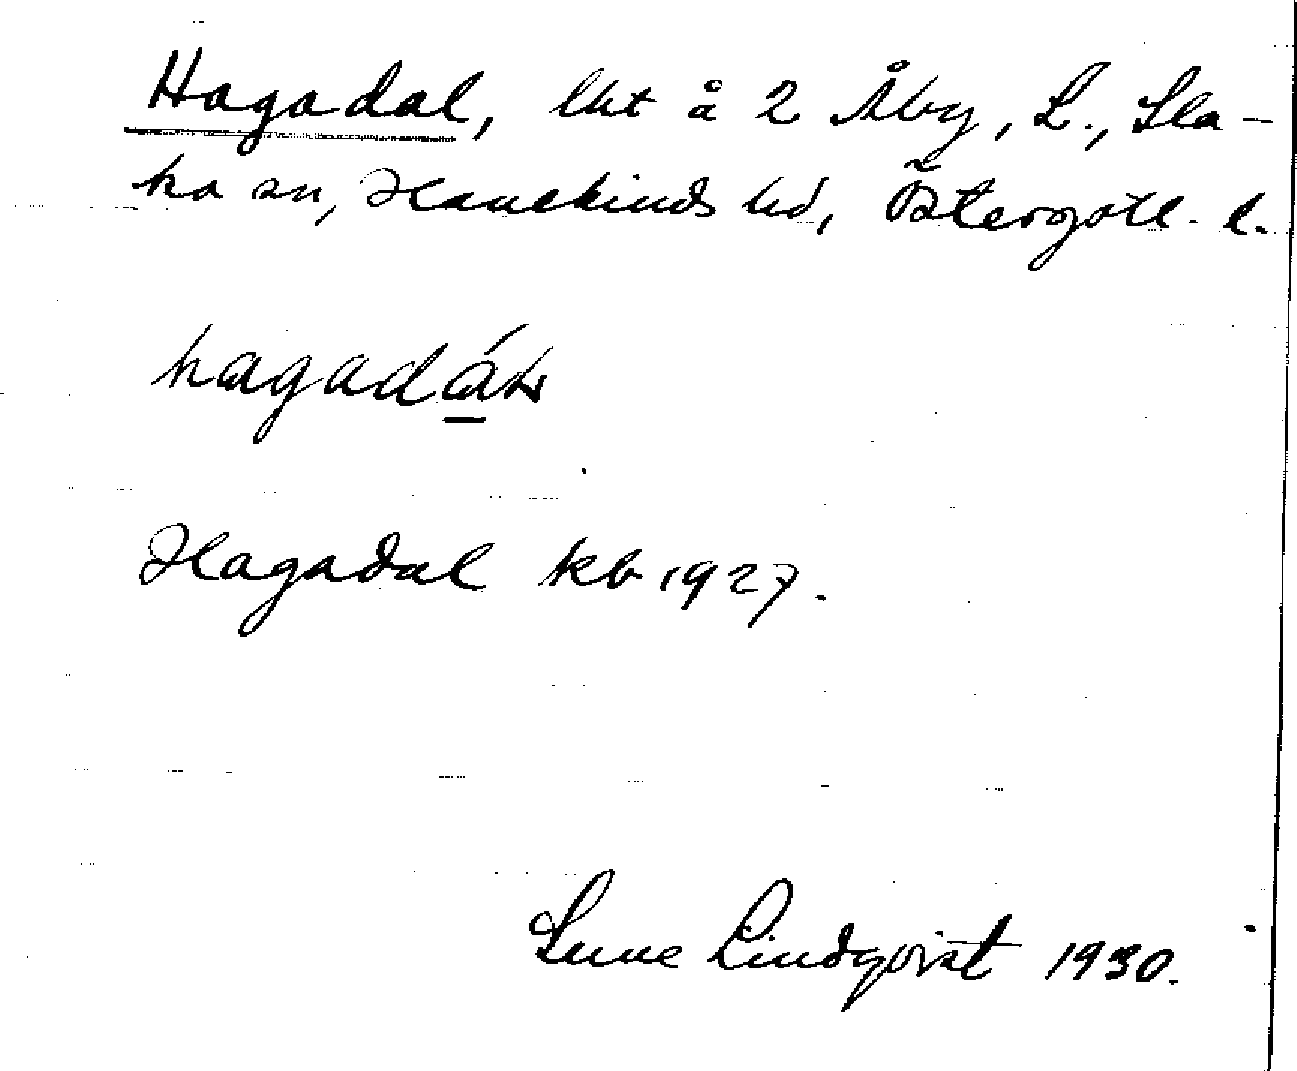 Hagadal, lht å 2 Åby, L., Sla-
ka sn, Hanekinds hd, Östergötl. l.
hagadáɫ
Hagadal kb 1927.
Sune Lindqvist 1930.